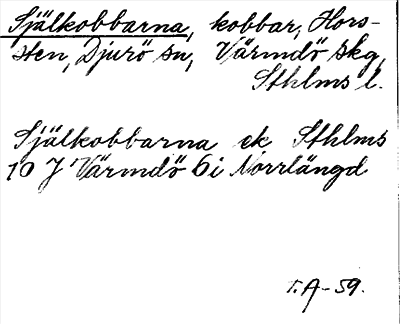 Själkobbarna, kobbar, Hors-
sten, Djurö sn, Värmdö skg,
Sthlms l.
Själkobbarna ek Sthlms
10 J Värmdö 6i Norrlängd
T.A-59.